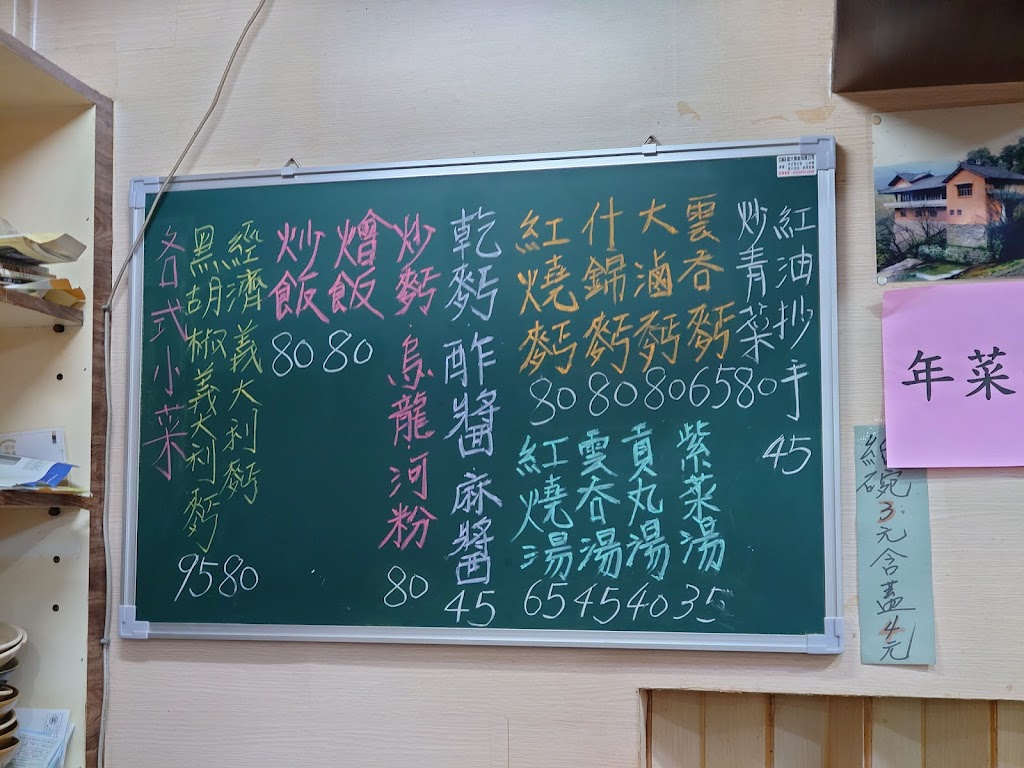 紅油抄手 45
炒青菜 80
雲吞麪 65
大滷麪 80
什錦麪 80
紅燒麪 80
紫菜湯 35
貢丸湯 40
雲吞湯 45
紅燒湯 65
乾麪 酢醬麻醬 45
炒麪 烏龍河粉 80
燴飯 80
炒飯 80
經濟義大利麪 80
黑胡椒義大利麪 95
各式小菜
年菜
紙碗3元含蓋4元